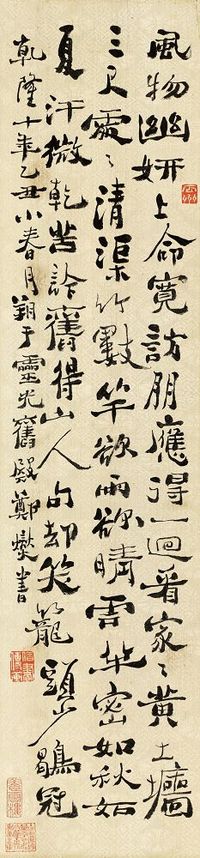 風物幽妍上命寬訪朋應得一迴看家〻黃土墻
三尺處〻清渠竹數竿欲雨欲晴雲共密如秋如
夏汗微乾苦吟舊得山人句却笑籠頭少鶡冠
乾隆十年乙丑小春月朔于靈光舊殿鄭燮書